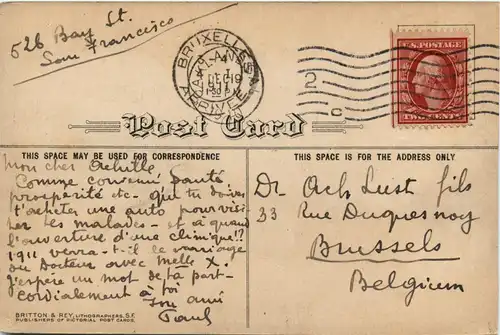 526 Bay St.
San Francisco
BRUXELLES
ARRIVEE
OAKLAND
DEC 19
U.S. POSTAGE
TWO CENTS
2
C
Post Card
THIS SPACE MAY BE USED FOR CORRESPONDENCE
THIS SPACE IS FOR THE ADDRESS ONLY
Mon cher Achille
Comme convenu Santé
prospérité etc - que tu doives
t'acheter une auto pour visi-
ter les malades - et à quand
l'ouverture d'une clinique!?
1911 verra-t-il le mariage
du Docteur avec Melle X.
j'espère un mot de ta part-
cordialement à toi
ton ami
Paul
Dr Ach Lust fils
33 Rue Duquesnoy
Brussels
Belgium
BRITTON & REY, LITHOGRAPHERS, S.F.
PUBLISHERS OF PICTORIAL POST CARDS.